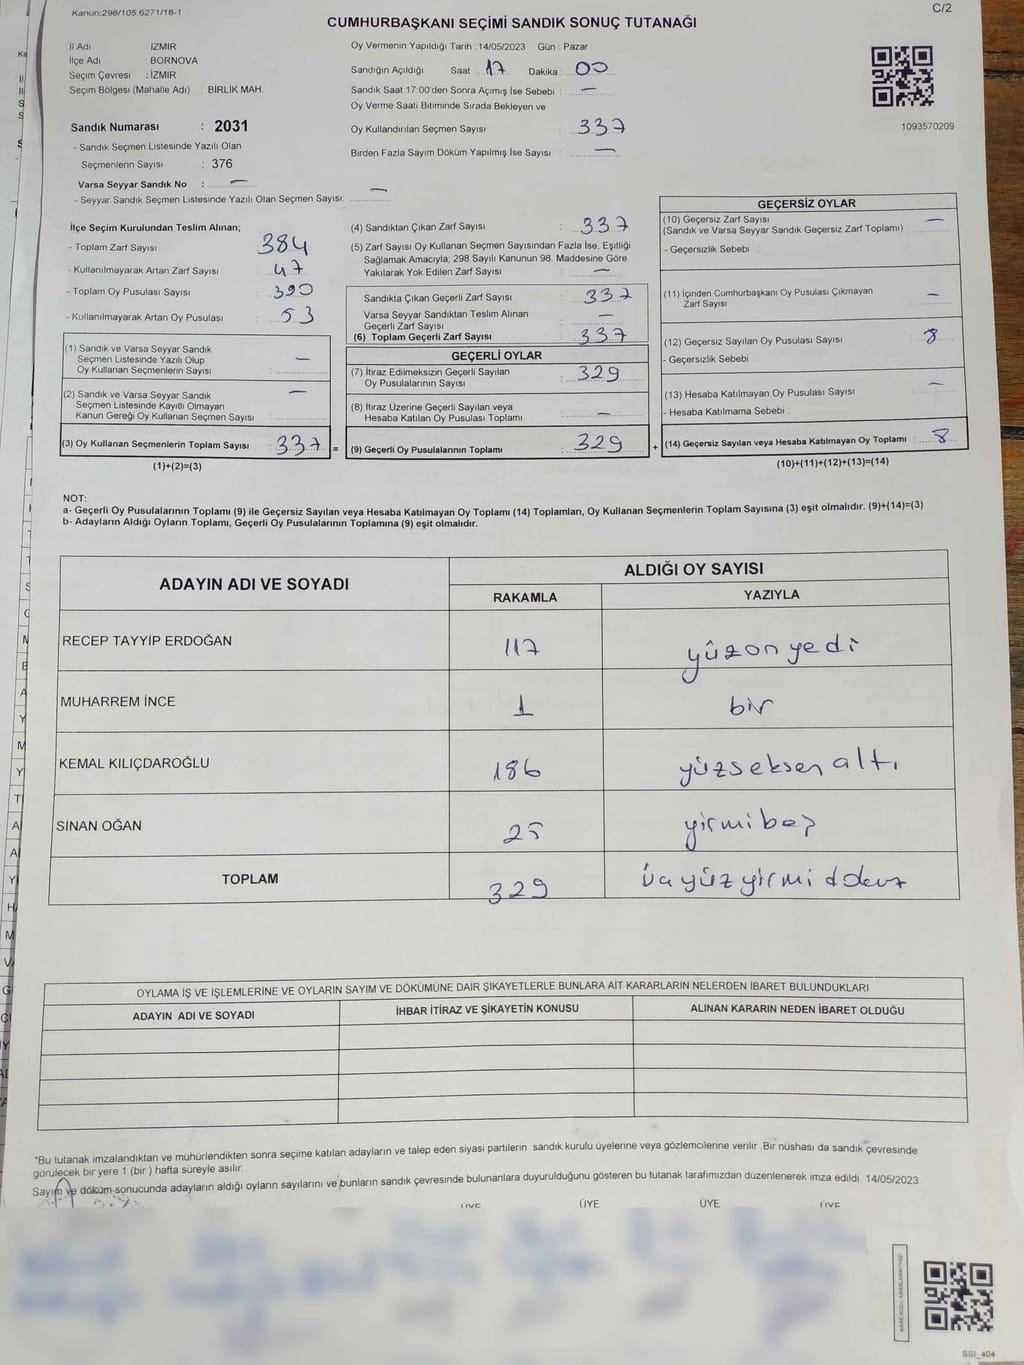 Kanun:298/105,6271/18-1
C/2
CUMHURBAŞKANI SEÇİMİ SANDIK SONUÇ TUTANAĞI
İl Adı : İZMİR
İlçe Adı : BORNOVA
Seçim Çevresi : İZMİR
Seçim Bölgesi (Mahalle Adı) : BİRLİK MAH.
Oy Vermenin Yapıldığı Tarih : 14/05/2023 Gün : Pazar
Sandığın Açıldığı Saat : 17 Dakika : 00
Sandık Saat 17:00'den Sonra Açımış İse Sebebi : —
Oy Verme Saati Bitiminde Sırada Bekleyen ve
Oy Kullandırılan Seçmen Sayısı : 337
Birden Fazla Sayım Döküm Yapılmış İse Sayısı : —
1093570209
Sandık Numarası : 2031
- Sandık Seçmen Listesinde Yazılı Olan
Seçmenlerin Sayısı : 376
Varsa Seyyar Sandık No : —
- Seyyar Sandık Seçmen Listesinde Yazılı Olan Seçmen Sayısı: —
İlçe Seçim Kurulundan Teslim Alınan;
- Toplam Zarf Sayısı : 384
- Kullanılmayarak Artan Zarf Sayısı : 47
- Toplam Oy Pusulası Sayısı : 390
- Kullanılmayarak Artan Oy Pusulası : 53
(1) Sandık ve Varsa Seyyar Sandık
Seçmen Listesinde Yazılı Olup
Oy Kullanan Seçmenlerin Sayısı : —
(2) Sandık ve Varsa Seyyar Sandık
Seçmen Listesinde Kayıtlı Olmayan
Kanun Gereği Oy Kullanan Seçmen Sayısı : —
(3) Oy Kullanan Seçmenlerin Toplam Sayısı : 337 =
(1)+(2)=(3)
(4) Sandıktan Çıkan Zarf Sayısı : 337
(5) Zarf Sayısı Oy Kullanan Seçmen Sayısından Fazla İse, Eşitliği
Sağlamak Amacıyla; 298 Sayılı Kanunun 98. Maddesine Göre
Yakılarak Yok Edilen Zarf Sayısı : —
Sandıkta Çıkan Geçerli Zarf Sayısı : 337
Varsa Seyyar Sandıktan Teslim Alınan
Geçerli Zarf Sayısı : —
(6) Toplam Geçerli Zarf Sayısı : 337
GEÇERLİ OYLAR
(7) İtiraz Edilmeksizin Geçerli Sayılan
Oy Pusulalarının Sayısı : 329
(8) İtiraz Üzerine Geçerli Sayılan veya
Hesaba Katılan Oy Pusulası Toplamı : —
(9) Geçerli Oy Pusulalarının Toplamı : 329 +
GEÇERSİZ OYLAR
(10) Geçersiz Zarf Sayısı : —
(Sandık ve Varsa Seyyar Sandık Geçersiz Zarf Toplamı)
- Geçersizlik Sebebi :
(11) İçinden Cumhurbaşkanı Oy Pusulası Çıkmayan
Zarf Sayısı : —
(12) Geçersiz Sayılan Oy Pusulası Sayısı : 8
- Geçersizlik Sebebi :
(13) Hesaba Katılmayan Oy Pusulası Sayısı : —
- Hesaba Katılmama Sebebi :
(14) Geçersiz Sayılan veya Hesaba Katılmayan Oy Toplamı : 8
(10)+(11)+(12)+(13)=(14)
NOT:
a- Geçerli Oy Pusulalarının Toplamı (9) ile Geçersiz Sayılan veya Hesaba Katılmayan Oy Toplamı (14) Toplamları, Oy Kullanan Seçmenlerin Toplam Sayısına (3) eşit olmalıdır. (9)+(14)=(3)
b- Adayların Aldığı Oyların Toplamı, Geçerli Oy Pusulalarının Toplamına (9) eşit olmalıdır.
ADAYIN ADI VE SOYADI ALDIĞI OY SAYISI
RAKAMLA YAZIYLA
RECEP TAYYİP ERDOĞAN 117 yüzon yedi
MUHARREM İNCE 1 bir
KEMAL KILIÇDAROĞLU 186 yüzseksen altı
SİNAN OĞAN 25 yirmibeş
TOPLAM 329
OYLAMA İŞ VE İŞLEMLERİNE VE OYLARIN SAYIM VE DÖKÜMÜNE DAİR ŞİKAYETLERLE BUNLARA AİT KARARLARIN NELERDEN İBARET BULUNDUKLARI
ADAYIN ADI VE SOYADI İHBAR İTİRAZ VE ŞİKAYETİN KONUSU ALINAN KARARIN NEDEN İBARET OLDUĞU
*Bu tutanak imzalandıktan ve mühürlendikten sonra seçime katılan adayların ve talep eden siyasi partilerin sandık kurulu üyelerine veya gözlemcilerine verilir .Bir nüshası da sandık çevresinde
görülecek bir yere 1 (bir ) hafta süreyle asılır.
Sayım ve döküm sonucunda adayların aldığı oyların sayılarını ve bunların sandık çevresinde bulunanlara duyurulduğunu gösteren bu tutanak tarafımızdan düzenlenerek imza edildi. 14/05/2023
ÜYE ÜYE ÜYE ÜYE
SSI_404